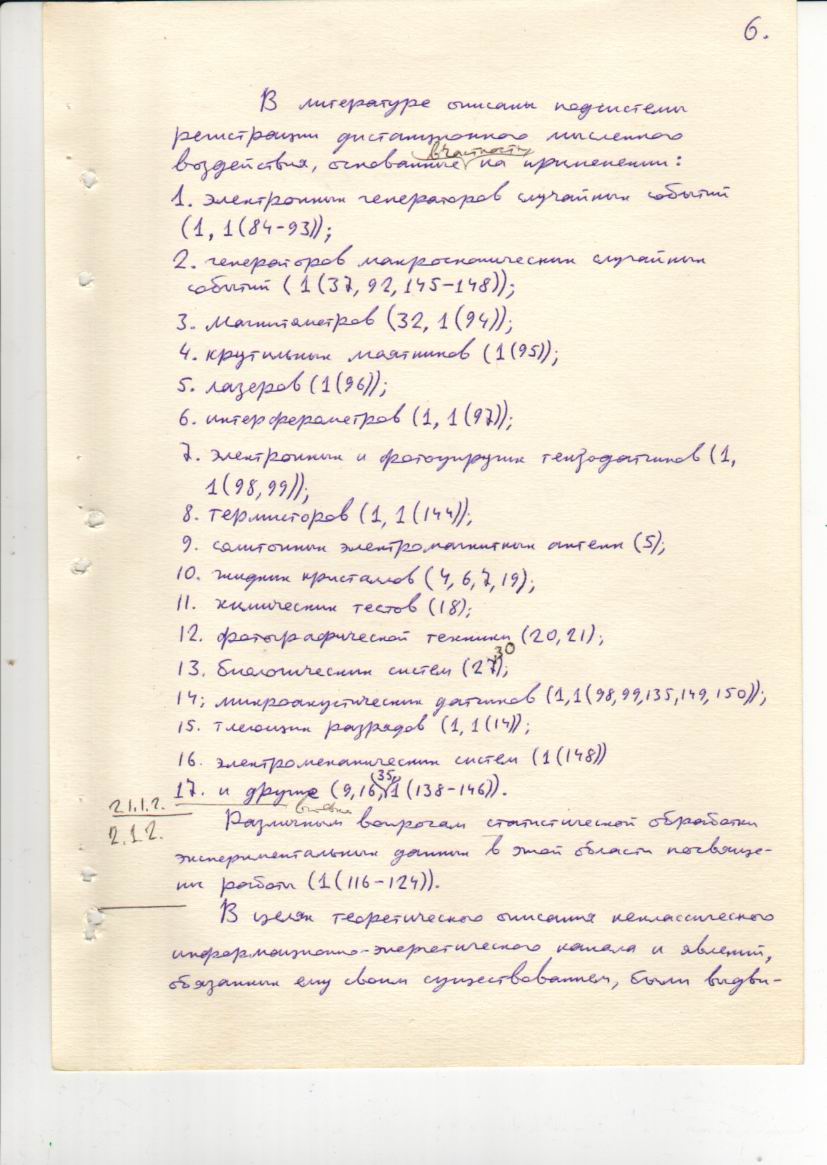 6.
В литературе описаны подсистемы
регистрации дистанционного мысленного
в частности
воздействия, основанные на применении:
1. электронных генераторов случайных событий
(1, 1(84-93));
2. генераторов макроскопических случайных
событий (1(37, 92, 145-148));
3. магнитометров (32, 1(94));
4. крутильных маятников (1(95));
5. лазеров (1(96));
6. интерферометров (1, 1(97));
7. электронных и фотоупругих тензодатчиков (1,
1(98,99));
8. термисторов (1, 1(144));
9. солитонных электромагнитных антенн (5);
10. жидких кристаллов (4, 6, 7, 19);
11. химических тестов (18);
12. фотографической техники (20, 21);
30
13. биологических систем (27);
14; микроакустических датчиков (1,1(98,99,135,149,150));
15. тлеющих разрядов (1, 1(14));
16. электромеханических систем (1(148))
(35,
17. и другие (9,16,1(138-146)).
2.1.1.2.
2.1.2.
Различным вопросам статистической обработки
экспериментальных данных в этой области посвяще-
ны работы (1(116-124)).
В целях теоретического описания неклассического
информационно-энергетического канала и явлений,
обязанных ему своим существованием, были выдви-